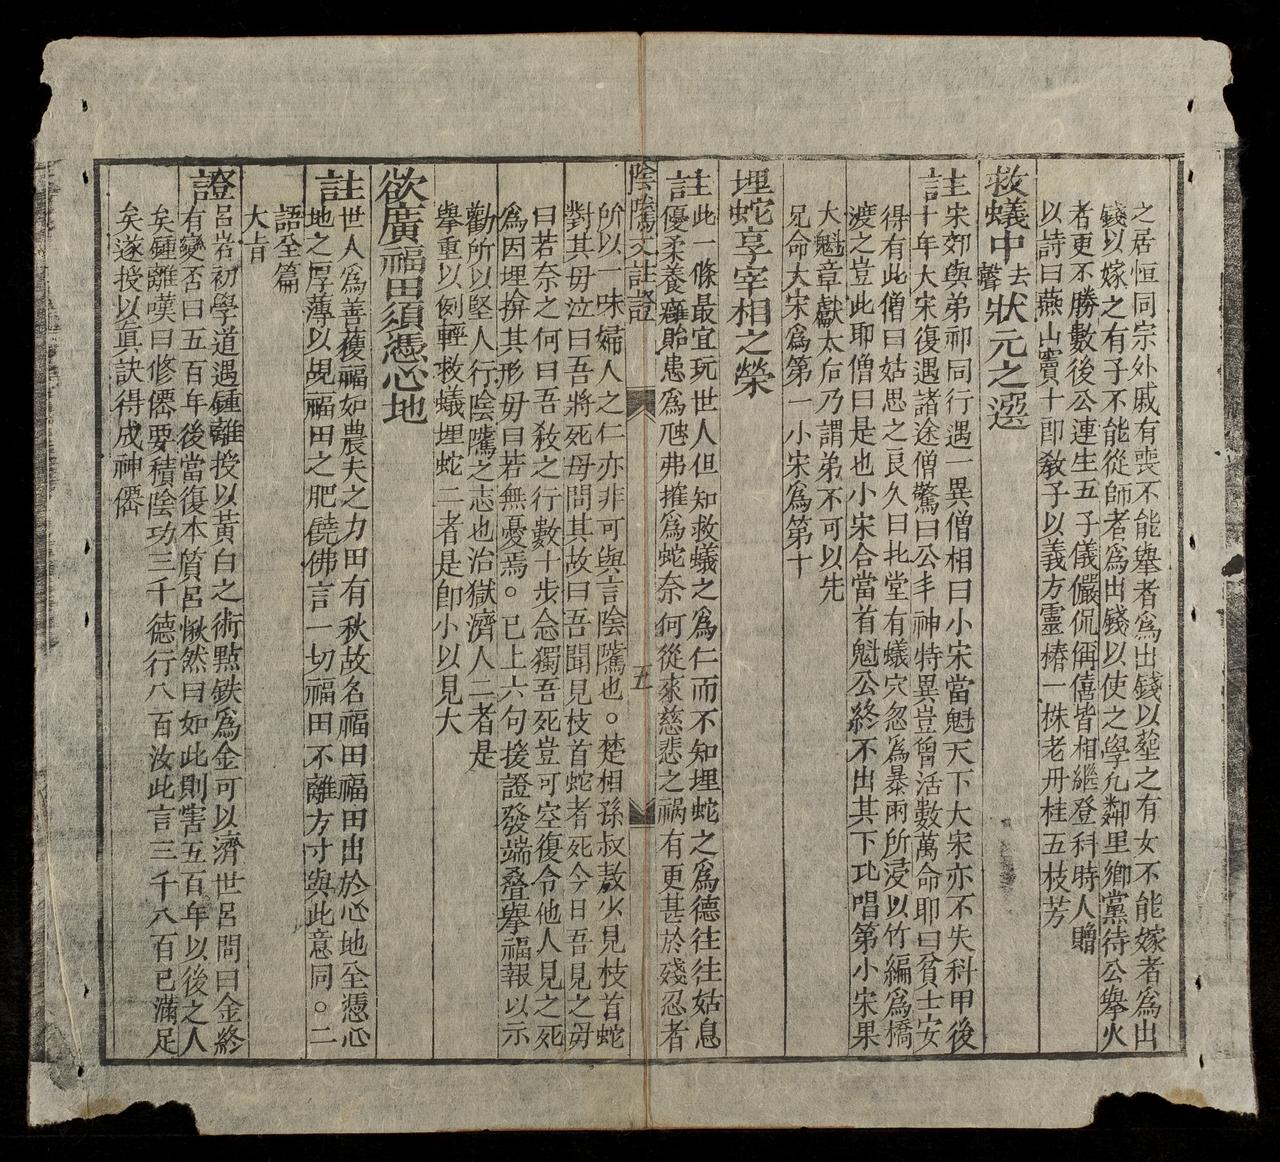 之居恒同宗外戚有喪不能舉者爲出錢以塟之有女不能嫁者爲出
錢以嫁之有子不能從師者爲出錢以使之學凢鄰里鄉黨待公舉火
者更不勝數後公連生五子儀儼侃偁僖皆相繼登科時人贈
以詩曰燕山竇十郎敎子以義方靈椿一株老丹桂五枝芳
救蟻中去聲狀元之選
註宋郊與弟祁同行遇一異僧相曰小宋當魁天下大宋亦不失科甲後
十年大宋復遇諸途僧驚曰公丰神特異豈曾活數萬命耶曰貧士安
得有此僧曰姑思之良久曰北堂有蟻穴忽爲暴雨所浸以竹編爲橋
渡之豈此耶僧曰是也小宋合當首魁公終不出其下比唱第小宋果
大魁章獻太后乃謂弟不可以先
兄命大宋爲第一小宋爲第十
埋蛇享宰相之榮
註此一條最宜玩世人但知救蟻之爲仁而不知埋蛇之爲德徃徃姑息
優柔養癰貽患爲虺弗摧爲蛇奈何從來慈悲之禍有更甚於殘忍者
陰隲文註證 五
所以一味婦人之仁亦非可與言陰隲也。楚相孫叔敖少見枝首蛇
對其母泣曰吾將死母問其故曰吾聞見枝首蛇者死今日吾見之母
曰若奈之何曰吾敎之行數十步念獨吾死豈可空復令他人見之死
爲因埋掩其形母曰若無憂焉。已上六句援證發端叠舉福報以示
勸所以堅人行陰隲之志也治獄濟人二者是
舉重以例輕救蟻埋蛇二者是卽小以見大
欲廣福田須憑心地
註世人爲善獲福如農夫之力田有秋故名福田福田出於心地全憑心
地之厚薄以覘福田之肥磽佛言一切福田不離方寸與此意同。二
語全篇
大旨
證呂嵓初學道遇鍾離授以黃白之術點鉄爲金可以濟世呂問曰金終
有變否曰五百年後當復本質呂愀然曰如此則害五百年以後之人
矣鍾離嘆曰修僊要積陰功三千德行八百汝此言三千八百已滿足
矣遂授以眞訣得成神僊